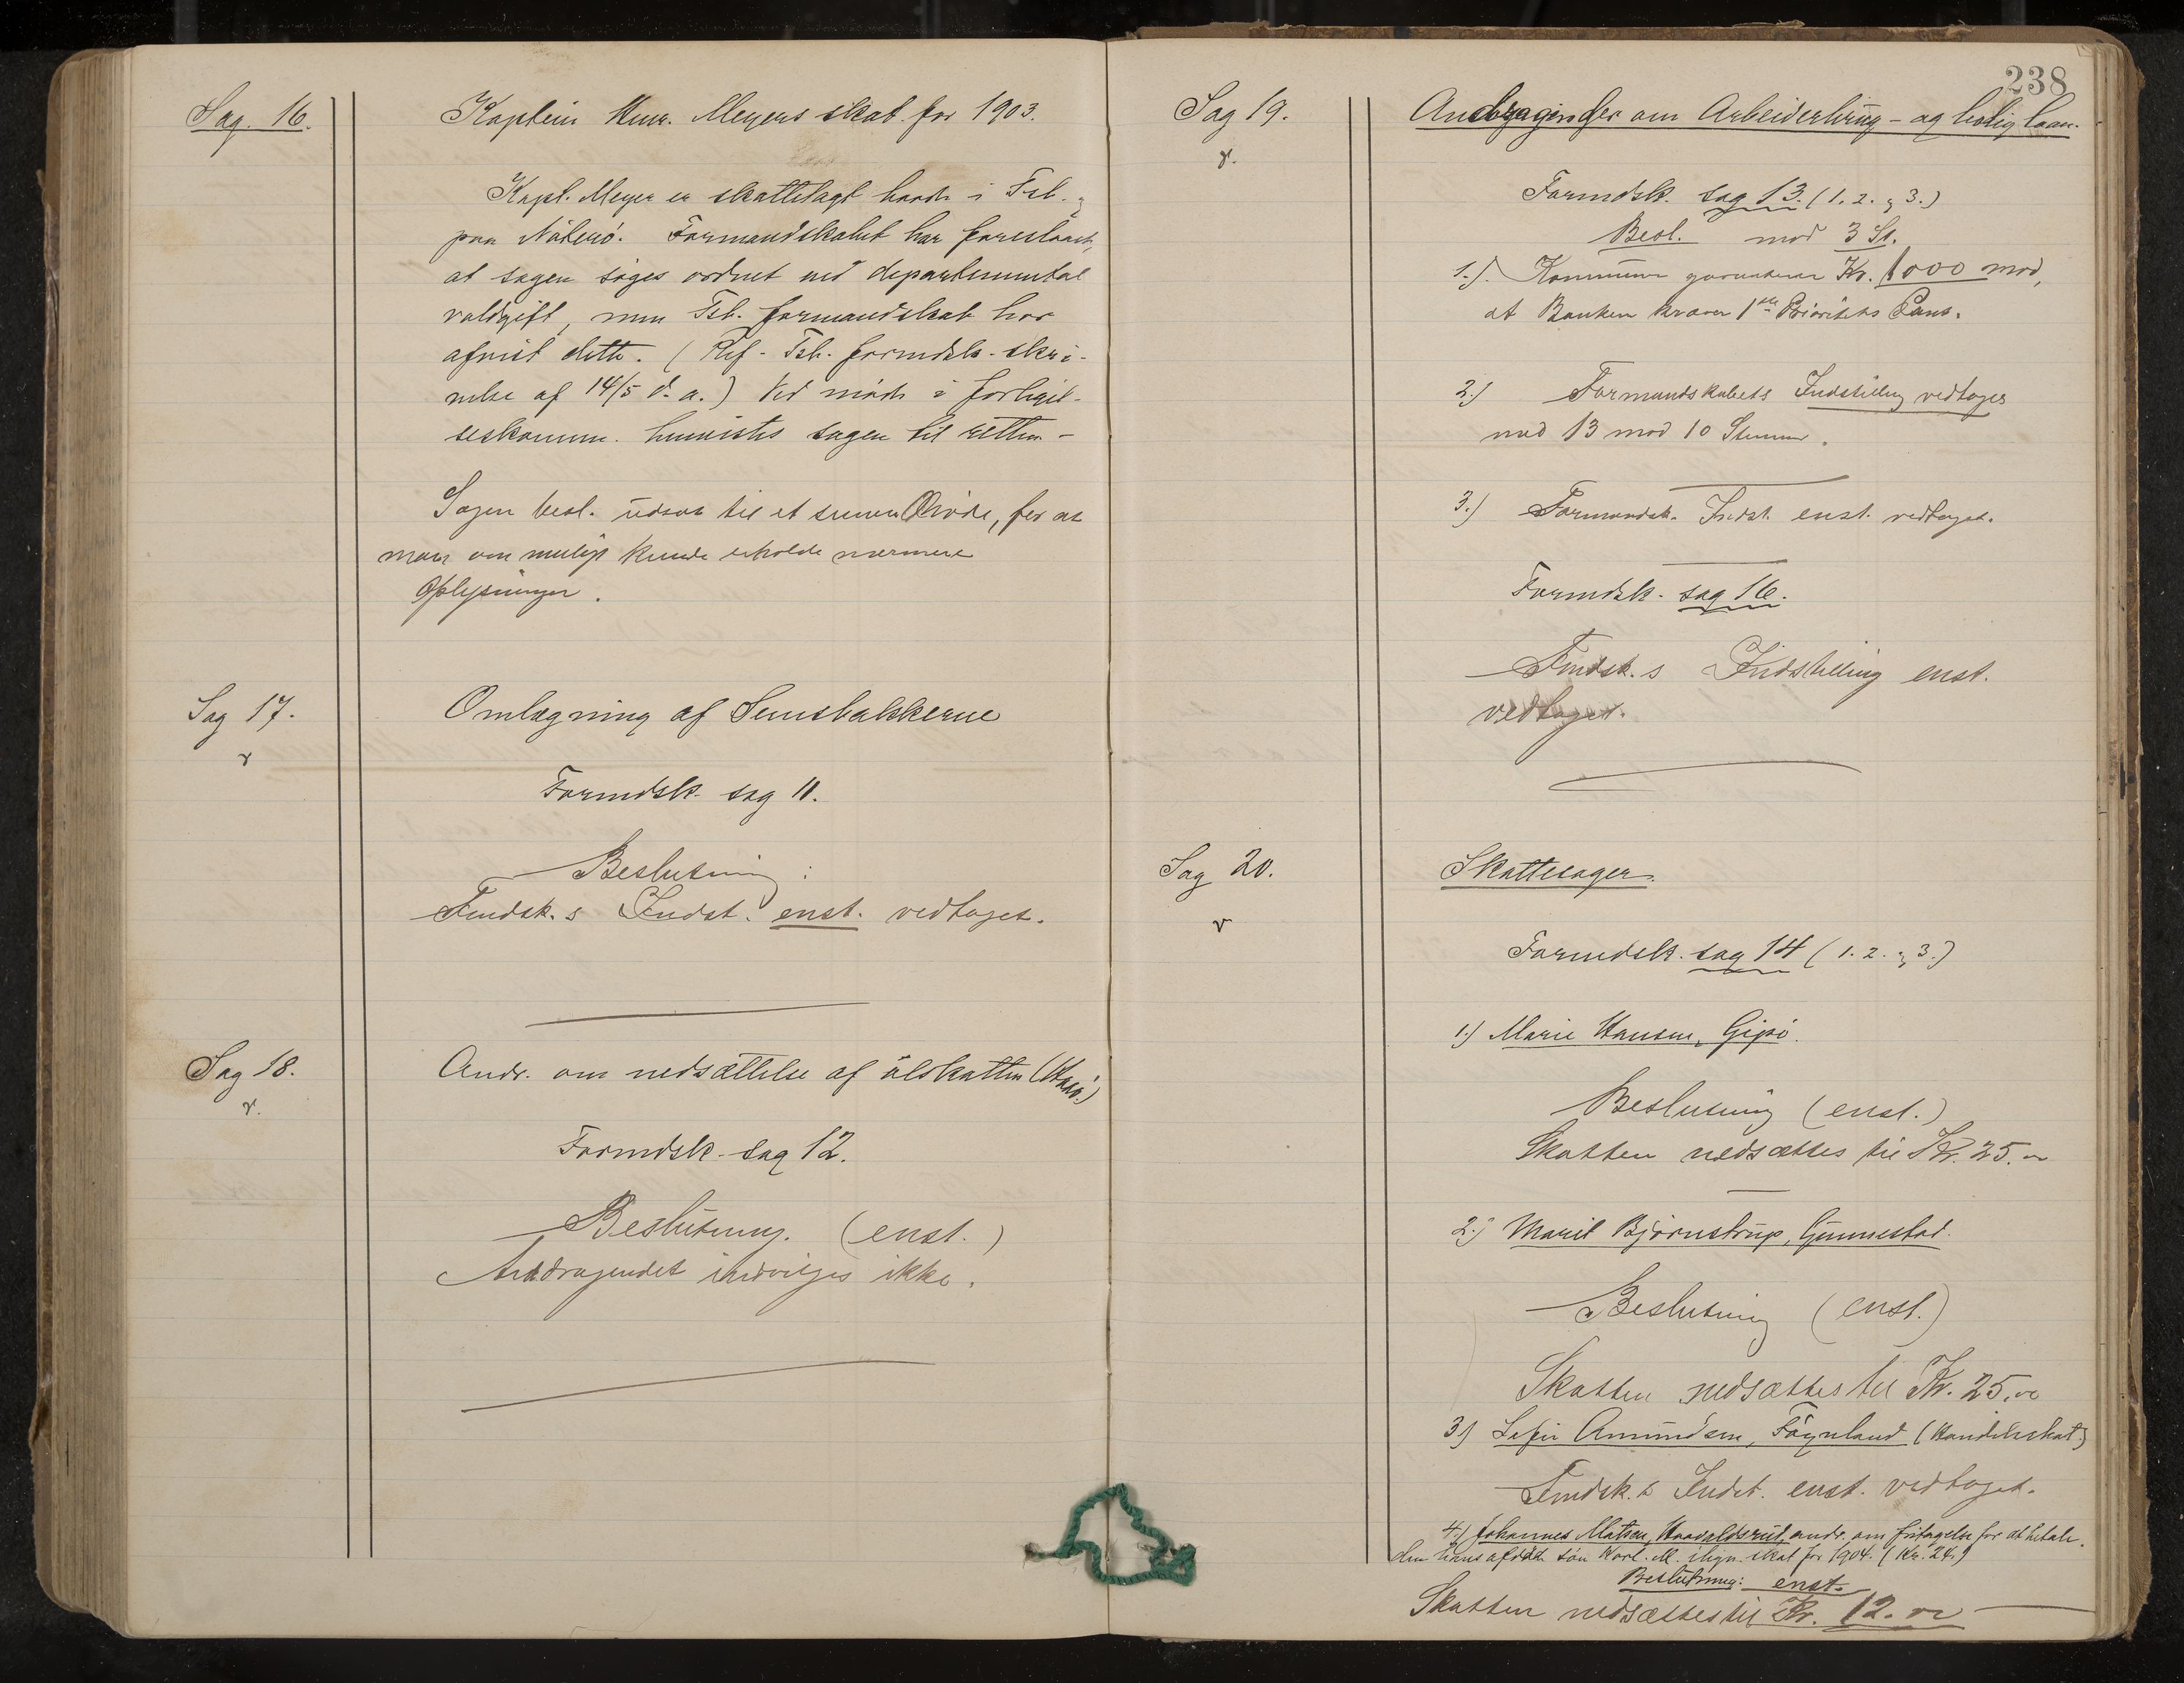 Sag. 16.
Kaptein Henr. Meyers skat for 1903.
Kapt. Meyer er skattelagt baade i Tsb. og
paa Nøterø. Formandskabet har foreslaaet,
at sagen søges ordnet ved departemental
voldgift, men Tsb. formandskab har
afvist dette. (Ref. Tsb. formdsk. skri-
velse af 14/5 d. a.) Ved møde i forligel-
seskomm. henvistes sagen til retten -
Sagen besl. udsat til et senere Møde, for at
man om muligt kunde erholde nærmere
Oplysninger.
Sag 17.
v
Omlægning af Semsbakkerne
Formdsk. sag 11.
Beslutning:
Fmdsk.s Indst. enst. vedtaget.
Sag 18.
v.
Andr. om nedsættelse af ølskatten
Formdsk. sag 12.
Beslutning. (enst.)
Andragendet indvilges ikke.
238
Sag 19.
v.
Andragender om Arbeiderbrug- og boliglaan.
Formdsk. sag 13. (1. 2. og 3.)
Besl. mod 3 St.
1.) Kommunen garanterer Kr. 1000 mod,
at Banken kræver 1ste Prioritets Pant.
2.) Formandskabets Indstilling vedtages
med 13 mod 10 Stemmer.
3.) Formandsk. Indst. enst. vedtaget.
Formdsk. sag 16.
Fmdsk.s Indstilling enst.
vedtaget.
Sag 20.
v
Skattesager.
Formdsk. sag 14 (1. 2. og 3.)
1.) Marie Hansen, Gipø.
Beslutning (enst.)
Skatten nedsættes til Kr. 25.00
2.) Marit Bjørnstrup, Gunnestad.
Beslutning (enst.)
Skatten nedsættes til Kr. 25.00
3) Amundsen, Føynland (Handelsskat)
Fmdsk.s Indst. enst. vedtaget.
4.) Johannes Matsen, andr. om fritagelse for at betale
den hans afdøde søn Karl. M. ilign. skat for 1904. (Kr. 24.)
Beslutning: enst.
Skatten nedsættes til Kr. 12.00